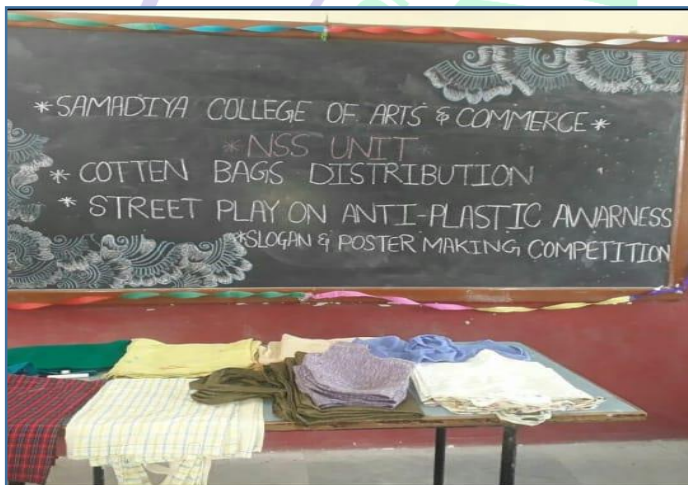 *SAMADIYA COLLEGE OF ARTS & COMMERCE*
*NSS UNIT*
*COTTEN BAGS DISTRIBUTION
*STREET PLAY ON ANTI-PLASTIC AWARNESS
*SLOGAN & POSTER MAKING COMPETITION